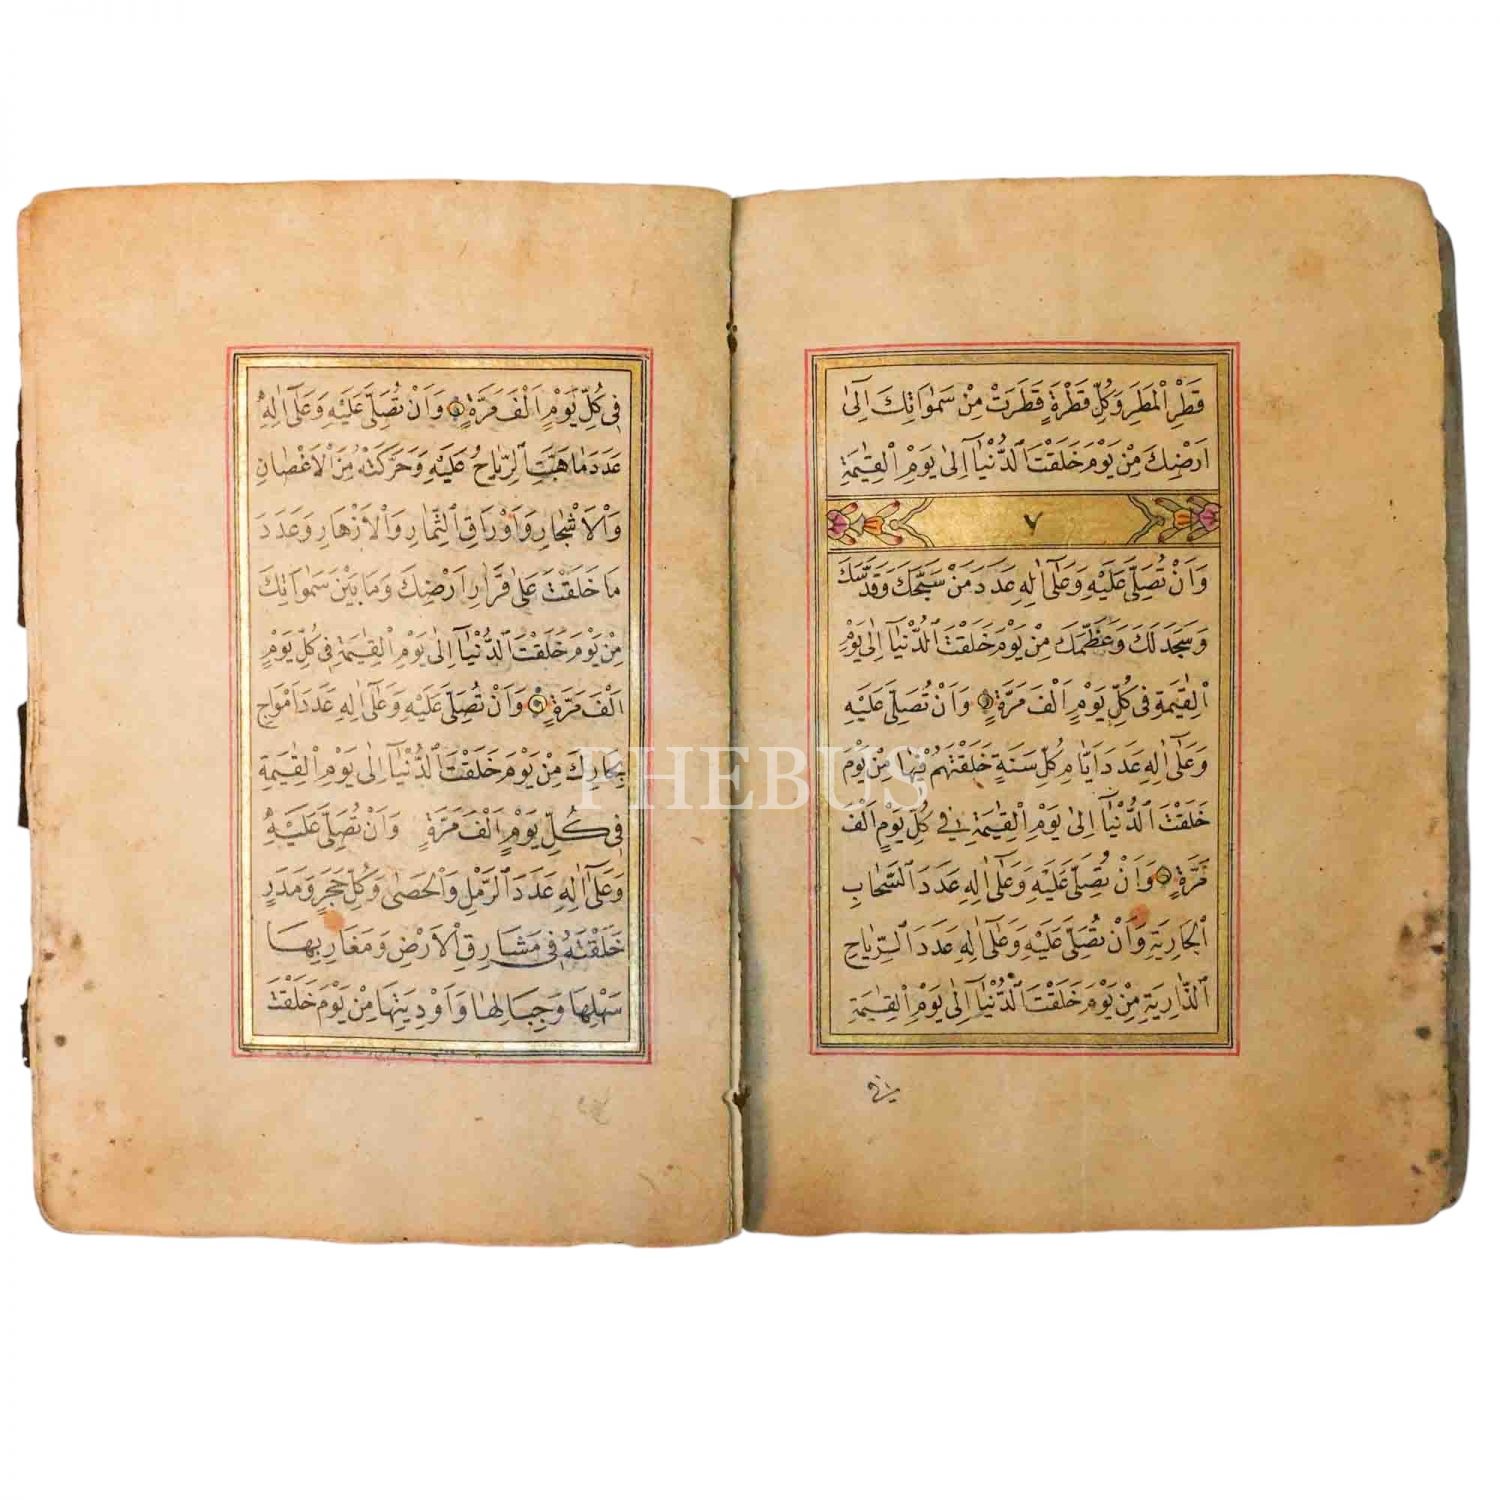 قَطْرِ الْمَطَرِ وَكُلِّ قَطْرَةٍ قَطَرَتْ مِنْ سَمٰوَاتِكَ اِلٰى
اَرْضِكَ مِنْ يَوْمِ خَلَقْتَ الدُّنْيَا اِلٰى يَوْمِ الْقِيٰمَةِ
٧
وَاَنْ تُصَلِّىَ عَلَيْهِ وَعَلٰى اٰلِهِ عَدَدَ مَنْ سَبَّحَكَ وَقَدَّسَكَ
وَسَجَدَ لَكَ وَعَظَّمَكَ مِنْ يَوْمِ خَلَقْتَ الدُّنْيَا اِلٰى يَوْمِ
الْقِيٰمَةِ فِى كُلِّ يَوْمٍ اَلْفَ مَرَّةٍ وَاَنْ تُصَلِّىَ عَلَيْهِ
وَعَلٰى اٰلِهِ عَدَدَ اَيَّامِ كُلِّ سَنَةٍ خَلَقْتَهُمْ فِيْهَا مِنْ يَوْمِ
خَلَقْتَ الدُّنْيَا اِلٰى يَوْمِ الْقِيٰمَةِ فِى كُلِّ يَوْمٍ اَلْفَ
مَرَّةٍ وَاَنْ تُصَلِّىَ عَلَيْهِ وَعَلٰى اٰلِهِ عَدَدَ السَّحَابِ
الْجَارِيَةِ وَاَنْ تُصَلِّىَ عَلَيْهِ وَعَلٰى اٰلِهِ عَدَدَ الرِّيَاحِ
الذَّارِيَةِ مِنْ يَوْمِ خَلَقْتَ الدُّنْيَا اِلٰى يَوْمِ الْقِيٰمَةِ
فِى كُلِّ يَوْمٍ اَلْفَ مَرَّةٍ وَاَنْ تُصَلِّىَ عَلَيْهِ وَعَلٰى اٰلِهِ
عَدَدَ مَا هَبَّتِ الرِّيَاحُ عَلَيْهِ وَحَرَّكَتْهُ مِنَ الْاَغْصَانِ
وَالْاَشْجَارِ وَاَوْرَاقِ الثِّمَارِ وَالْاَزْهَارِ وَعَدَدَ
مَا خَلَقْتَ عَلٰى قَرَارِ اَرْضِكَ وَمَا بَيْنَ سَمٰوَاتِكَ
مِنْ يَوْمِ خَلَقْتَ الدُّنْيَا اِلٰى يَوْمِ الْقِيٰمَةِ فِى كُلِّ يَوْمٍ
اَلْفَ مَرَّةٍ وَاَنْ تُصَلِّىَ عَلَيْهِ وَعَلٰى اٰلِهِ عَدَدَ اَمْوَاجِ
بِحَارِكَ مِنْ يَوْمِ خَلَقْتَ الدُّنْيَا اِلٰى يَوْمِ الْقِيٰمَةِ
فِى كُلِّ يَوْمٍ اَلْفَ مَرَّةٍ وَاَنْ تُصَلِّىَ عَلَيْهِ
وَعَلٰى اٰلِهِ عَدَدَ الرَّمْلِ وَالْحَصٰى وَكُلِّ حَجَرٍ وَمَدَرٍ
خَلَقْتَهُ فِى مَشَارِقِ الْاَرْضِ وَمَغَارِبِهَا
سَهْلِهَا وَجِبَالِهَا وَاَوْدِيَتِهَا مِنْ يَوْمِ خَلَقْتَ
PHEBUS